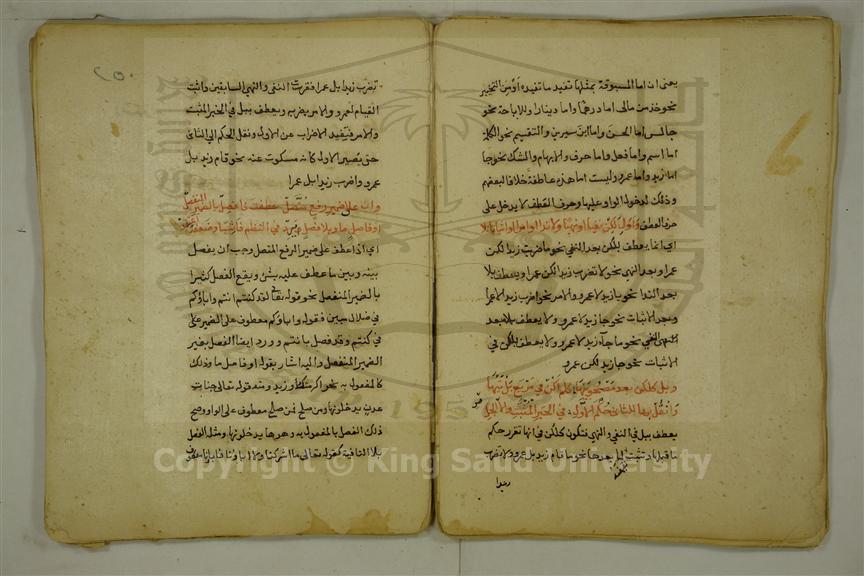 يعنى ان اما المسبوقة بمثلها تفيد ما تفيده او من التخيير
نحو خذ من مالى اما درهما واما دينارا وللاباحة نحو
جالس اما الحسن واما ابن سيرين والتقسيم نحو الكلمة
اما اسم واما فعل واما حرف والابهام والشك نحو جا
اما زيد واما عمرو وليست اما هذه عاطفة خلافا لبعضهم
وذلك لدخول الواو عليها وحرف العطف لا يدخل على
حرف العطف وأول لكن نفيا او نهيا ولا نداء او امرا او اثباتا تلا
اى انما يعطف بلكن بعد النفى نحو ما ضربت زيد لكن
عمرا وبعد النهى نحو لا تضرب زيدا لكن عمرا ويعطف بلا
بعد الندا نحو يا زيد لا عمرو والامر نحو اضرب زيدا لا عمرا
وبعد الاثبات نحو جا زيد لا عمرو ولا يعطف بلا بعد
النفى نحو ما جا زيد لا عمرو ولا يعطف بلكن فى
الاثبات نحو جا زيد لكن عمرو
وبل كلكن بعد مصحوبيها كلم اكن فى مربع بل تيها
وانقل بها للثان حكم الاول فى الخبر المثبت والامر الجلى
يعطف ببل فى النفى والنهى فتكون كلكن فى انها تقرر حكم
ما قبلها وتثبت لما بعدها نحو ما قام زيد بل عمرو ولا تضرب
زيدا
٢٥٠
تضرب زيدا بل عمرا فقررت النفى والنهى السابقين واثبت
القيام لعمرو والامر بضربه ويعطف ببل فى الخبر المثبت
والامر فتفيد الاضراب عن الاول ونقل الحكم الى الثانى
حتى يصير الاول كانه مسكوت عنه نحو قام زيد بل
عمرو واضرب زيدا بل عمرا
وان على ضمير رفع متصل عطفت فافصل بالضمير المنفصل
او فاصل ما وبلا فصل يرد فى النظم فاشيا وضعفه اعتقد
اى اذا عطف على ضمير الرفع المتصل وجب ان يفصل
بينه وبين ما عطف عليه بشئ ويقع الفصل كثيرا
بالضمير المنفصل نحو قوله تعالى لقد كنتم انتم واباؤكم
فى ضلال مبين فقوله واباؤكم معطوف على الضمير
فى كنتم وقد فصل بانتم وورد ايضا الفصل بغير
الضمير المنفصل واليه اشار بقوله او فاصل ما وذلك
كالمفعول به نحو اكرمتك وزيد ومنه قوله تعالى جنات
عدن يدخلونها ومن صلح فمن صلح معطوف على الواو وصح
ذلك الفصل بالمفعول به وهو ها يدخلونها ومثله الفصل
بلا النافية كقوله تعالى ما اشركنا ولا اباؤنا فاباؤنا
Copyright © King Saud University
1957